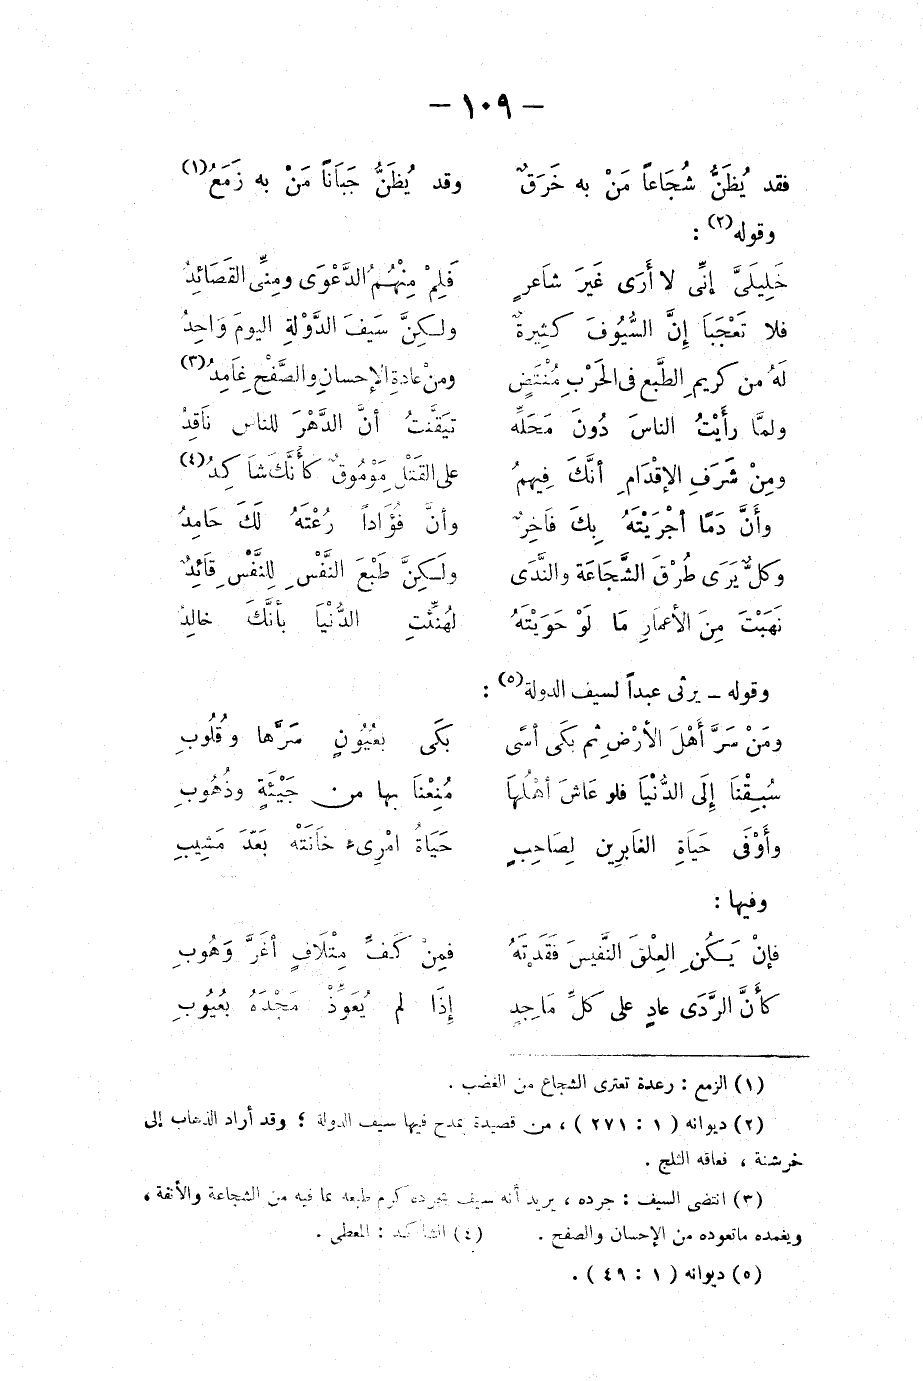 — ١٠٩ —
فقد يُظَنُّ شُجَاعاً مَنْ به خَرَقٌ وقد يُظَنُّ جَبَاناً مَنْ به زَمَعُ(١)
وقوله(٢) :
خَلِيلَىَّ إنِّى لا أَرَى غَيرَ شاعرٍ فَلِمْ مِنْهُمُ الدَّعْوَى ومِنِّى القَصَائِدُ
فلا تَعْجَبَا إنَّ السُّيُوفَ كثِيرةٌ ولكِنَّ سَيفَ الدَّوْلةِ اليومَ وَاحِدُ
لَهُ من كريمِ الطَّبع فى الحَرْبِ مُنْتَضٍ ومنْ عادةِ الإحسانِ والصَّفْحِ غَامِدُ(٣)
ولمَّا رأَيْتُ الناسَ دُونَ مَحَلِّه تيَقَّنتُ أنَّ الدَّهْرَ للناس نَاقِدُ
ومِنْ شَرَفِ الإقْدَامِ أنَّكَ فِيهِمُ على القَتْلِ مَوْمُوقٌ كأَنَّكَ شَاكِدُ(٤)
وأَنَّ دَمًا أجْرَيْتَهُ بِكَ فَاخِرٌ وأنَّ فُؤَاداً رُعْتَهُ لَكَ حَامِدُ
وكلٌّ يَرَى طُرْقَ الشَّجَاعَة والنَّدَى ولَكِنَّ طَبْعَ النَّفْسِ لِلنَّفْسِ قَائِدُ
نَهَبْتَ مِنَ الأعمَارِ مَا لَوْ حَوَيْتَهُ لهُنِّئَتِ الدُّنْيَا بأنَّكَ خالِدُ
وقوله ــ يرثى عبداً لسيف الدولة(٥) :
ومَنْ سَرَّ أَهْلَ الأرْضِ ثم بَكَى أسًى بَكَى بعُيُونٍ سَرَّها وقُلُوبِ
سُبِقْنَا إلَى الدُّنْيَا فلو عَاشَ أهْلُهَا مُنِعْنَا بها من جَيْئَةٍ وذُهُوبِ
وأَوْفَى حَيَاةِ الغَابرِين لِصَاحِبٍ حَيَاةُ امْرِىء خَانَتْه بَعْدَ مَشِيبِ
وفيها :
فإنْ يَكُنِ العِلْقَ النَّفِيسَ فَقَدْتَهُ فمِنْ كَفِّ مِتْلَافٍ أغَرَّ وَهُوبِ
كأَنَّ الرَّدَى عادٍ على كلِّ مَاجِدٍ إذَا لم يُعَوِّذْ مَجْدَهُ بعُيُوبِ
(١) الزمع : رعدة تعترى الشجاع من الغضب .
(٢) ديوانه ( ١ : ٢٧١ ) ، من قصيدة يمدح فيها سيف الدولة ؛ وقد أراد الذهاب إلى
خرشنة ، فعاقه الثلج .
(٣) انتضى السيف : جرده ، يريد أنه سيف يجرده كرم طبعه بما فيه من الشجاعة والأنفة ،
ويغمده ماتعوده من الإحسان والصفح . (٤) الشاكد : المعطى .
(٥) ديوانه ( ١ : ٤٩ ) .